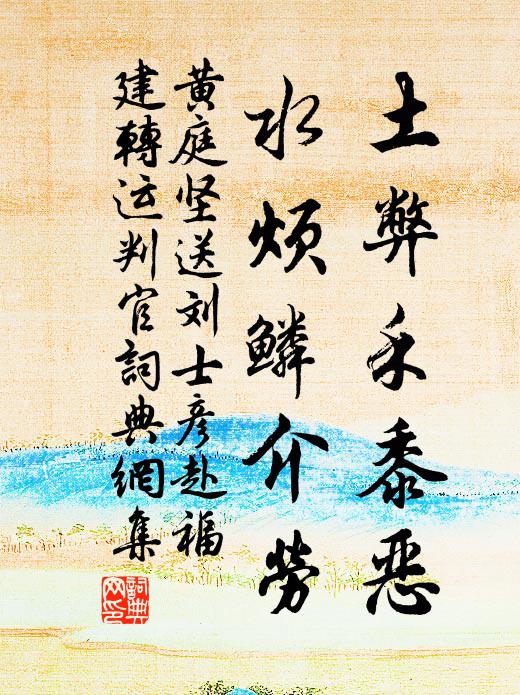 土弊禾黍惡
水煩鱗介勞
黄庭坚送刘士彦赴福
建轉运判官詞典網集
詞典